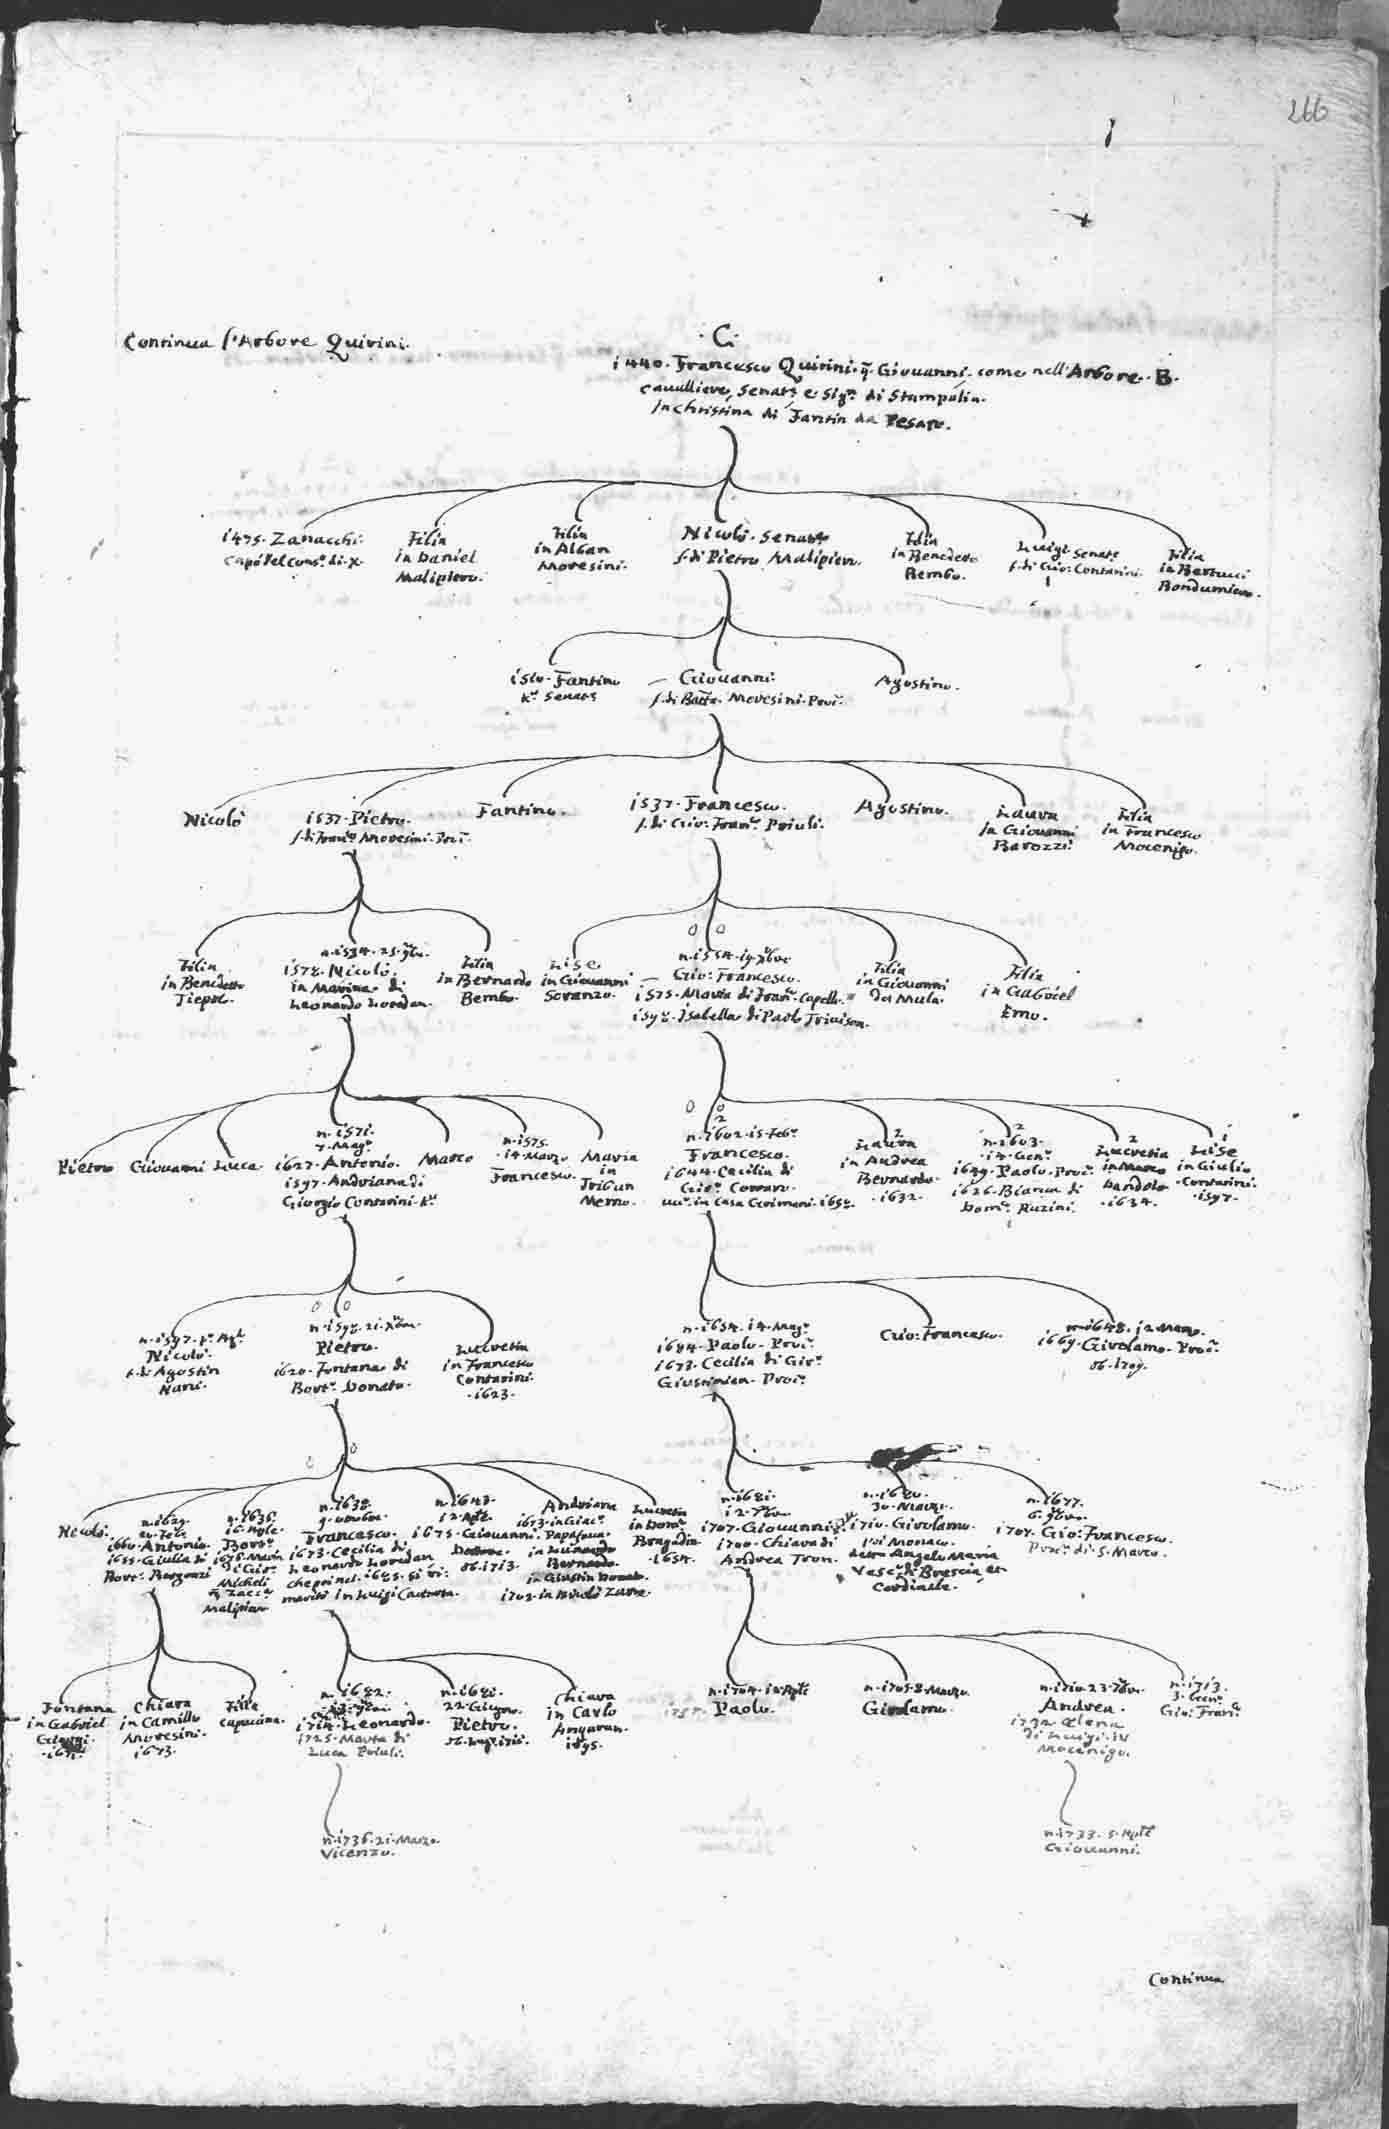 266
Continua l'Arbore Quirini.
C.
1440. Francesco Quirini. q. Giovanni. come nell'Arbore. B.
Cavalliere, Senatr. e Sigr. di Stampalia.
in Christina di Fantin da Pesaro.
1475. Zanacchi.
Capo del Cons.o di. X.
Filia
in Daniel
Malipiero.
Filia
in Alban
Moresini.
Nicolò. Senatr.
f. di Pietro Malipiero.
Filia
in Benedetto
Bembo.
Luigi. Senatr.
f. di Gio: Contarini.
Filia
in Bertucci
Bondumiero.
1510. Fantino
K.r Senatr.
Giovanni.
f. di Batta. Moresini. Procr.
Agostino.
Nicolò
1537. Pietro.
f. di Franc.o Moresini. Procr.
Fantino.
1537. Francesco.
f. di Gio: Franc.o Priuli.
Agostino.
Laura
in Giovanni
Barozzi.
Filia
in Francesco
Mocenigo.
Filia
in Benedetto
Tiepolo.
n. 1534. 25. 9bre.
1572. Nicolò.
in Marina di
Leonardo Loredan.
Filia
in Bernardo
Bembo.
Lise
in Giovanni
Soranzo.
n. 1554. 19. Xbre
Gio: Francesco.
1575. Marta di Franc.o Capello.
1592. Isabella di Paolo Trivisan.
Filia
in Giovanni
da Mula.
Filia
in Gabriel
Emo.
Pietro
Giovanni
Luca.
n. 1571.
7. Magg.o
1627. Antonio.
1597. Andriana di
Giorgio Contarini. K.r
Marco
n. 1575.
14. Marzo
Francesco.
Maria
in
Tribun
Memo.
2
n. 1602. 15. Feb.o
Francesco.
1644. Cecilia di
Gio: Corraro.
in Casa Grimani. 1652.
2
Laura
in Andrea
Bernardo.
1632.
2
n. 1603.
14. Gen.o
1649. Paolo. Procr.
1626. Bianca di
Dom.o Ruzini.
2
Lucretia
in Marco
Dandolo
1634.
1
Lise
in Giulio
Contarini.
1597.
n. 1597. p.o Apl.
Nicolò.
f. di Agostin
Nani.
n. 1598. 21. Xbre.
Pietro.
1620. Fontana di
Bort.o Donato.
Lucretia
in Francesco
Contarini.
1623.
n. 1654. 14. Magg.o
1684. Paolo. Procr.
1673. Cecilia di Gir.o
Giustinian. Procr.
Gio: Francesco.
n. 1648. 12. Marzo.
1669. Girolamo. Procr.
ob. 1709.
Nicolò.
n. 1629.
20. Feb.
1660. Antonio.
1655. Giulia di
Bort.o Bergonzi
n. 1636.
16. Aple.
Bort.o
1676. Maria
di Gir.o
Micheli
q. Zacc.a
Malipiero
n. 1638.
9. Ottobre.
Francesco.
1673. Cecilia di
Leonardo Loredan
che poi nel. 1685. si ri:
maritò in Luigi Contarini.
n. 1643.
12. Aple.
1675. Giovanni.
Dottore.
ob. 1713.
Andriana
1673. in Giac.o
Papafava.
in Lunardo
Bernardo.
in Giustin Donato.
1702. in Nicolò Zane.
Lucretia
in Dom.o
Bragadin
1654.
n. 1681.
12. 7bre.
1707. Giovanni.
1700. Chiara di
Andrea Tron.
n. 1680.
30. Marzo.
1710. Girolamo.
poi Monaco.
detto Angelo Maria
Vesc.o di Brescia et
Cardinale.
n. 1677.
6. 9bre.
1704. Gio: Francesco.
Proc.r di S. Marco.
Fontana
in Gabriel
Giorgi.
Chiara
in Camillo
Moresini.
1673.
Filia
capucina.
n. 1682.
1714. Leonardo.
1725. Marta di
Luca Priuli.
n. 1681.
22. Giugno.
Pietro.
Chiara
in Carlo
Angaran.
1695.
n. 1704. 12. Aple
Paolo.
n. 1705. 8. Marzo.
Girolamo.
n. 1710. 23. 7bre.
Andrea.
1732. Elena
di Luigi IV
Mocenigo.
n. 1713.
3. Genn.o
Gio: Fran.co
n. 1736. 21. Marzo.
Vicenzo.
n. 1733. 5. Aple
Giovanni.
Continua